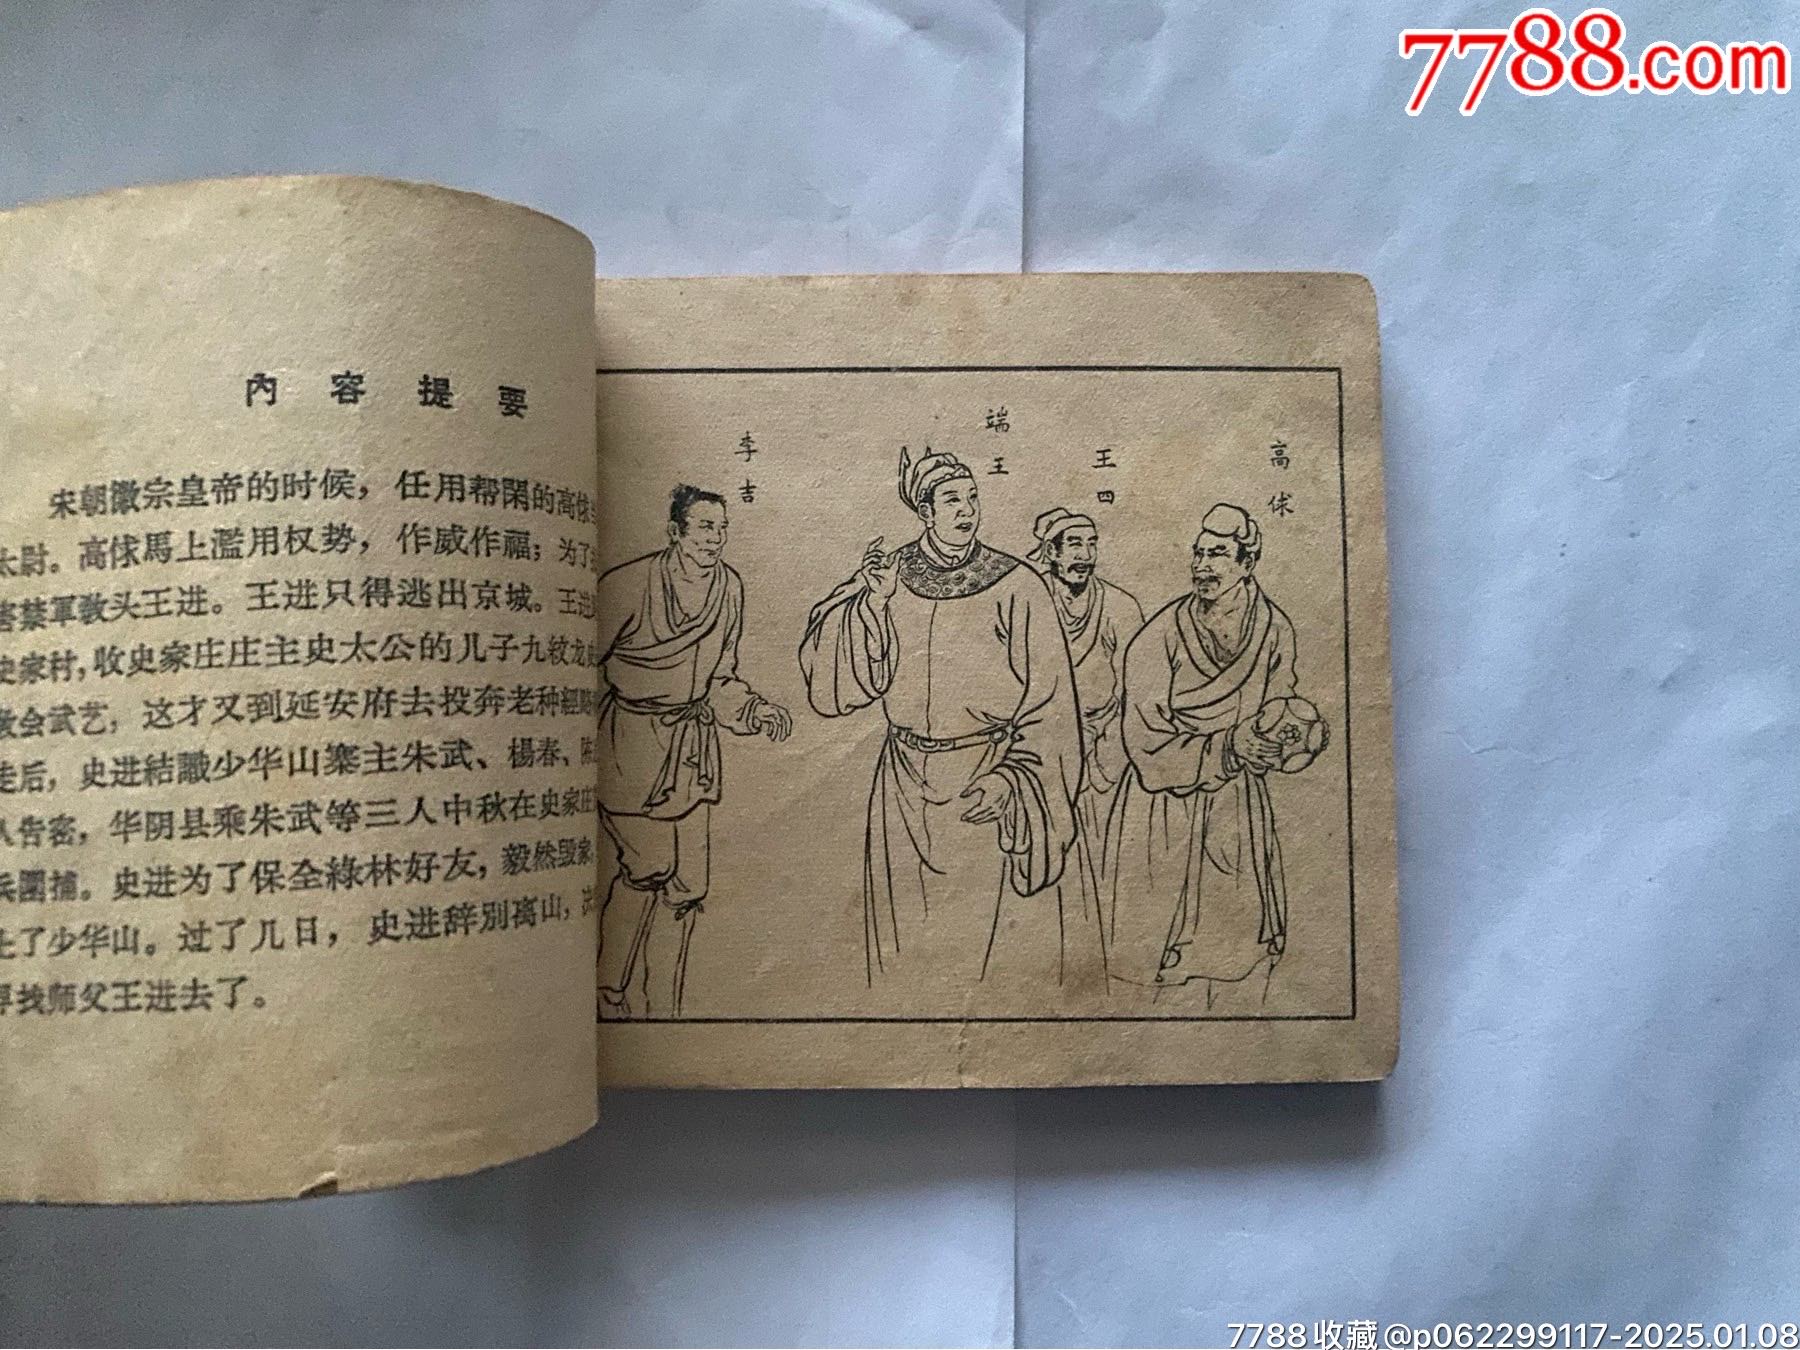 7788.com
內容提要
宋朝徽宗皇帝的时候，任用帮閑的高俅
太尉。高俅馬上濫用权势，作威作福；为了
害禁軍敎头王进。王进只得逃出京城。王进
史家村，收史家庄庄主史太公的儿子九紋龙
敎会武艺，这才又到延安府去投奔老种經略
走后，史进結識少华山寨主朱武、楊春、陈
人告密，华阴县乘朱武等三人中秋在史家庄
兵圍捕。史进为了保全綠林好友，毅然毀家，
上了少华山。过了几日，史进辞別离山，
寻找师父王进去了。
李吉
端王
王四
高俅
7788收藏@p062299117-2025.01.08